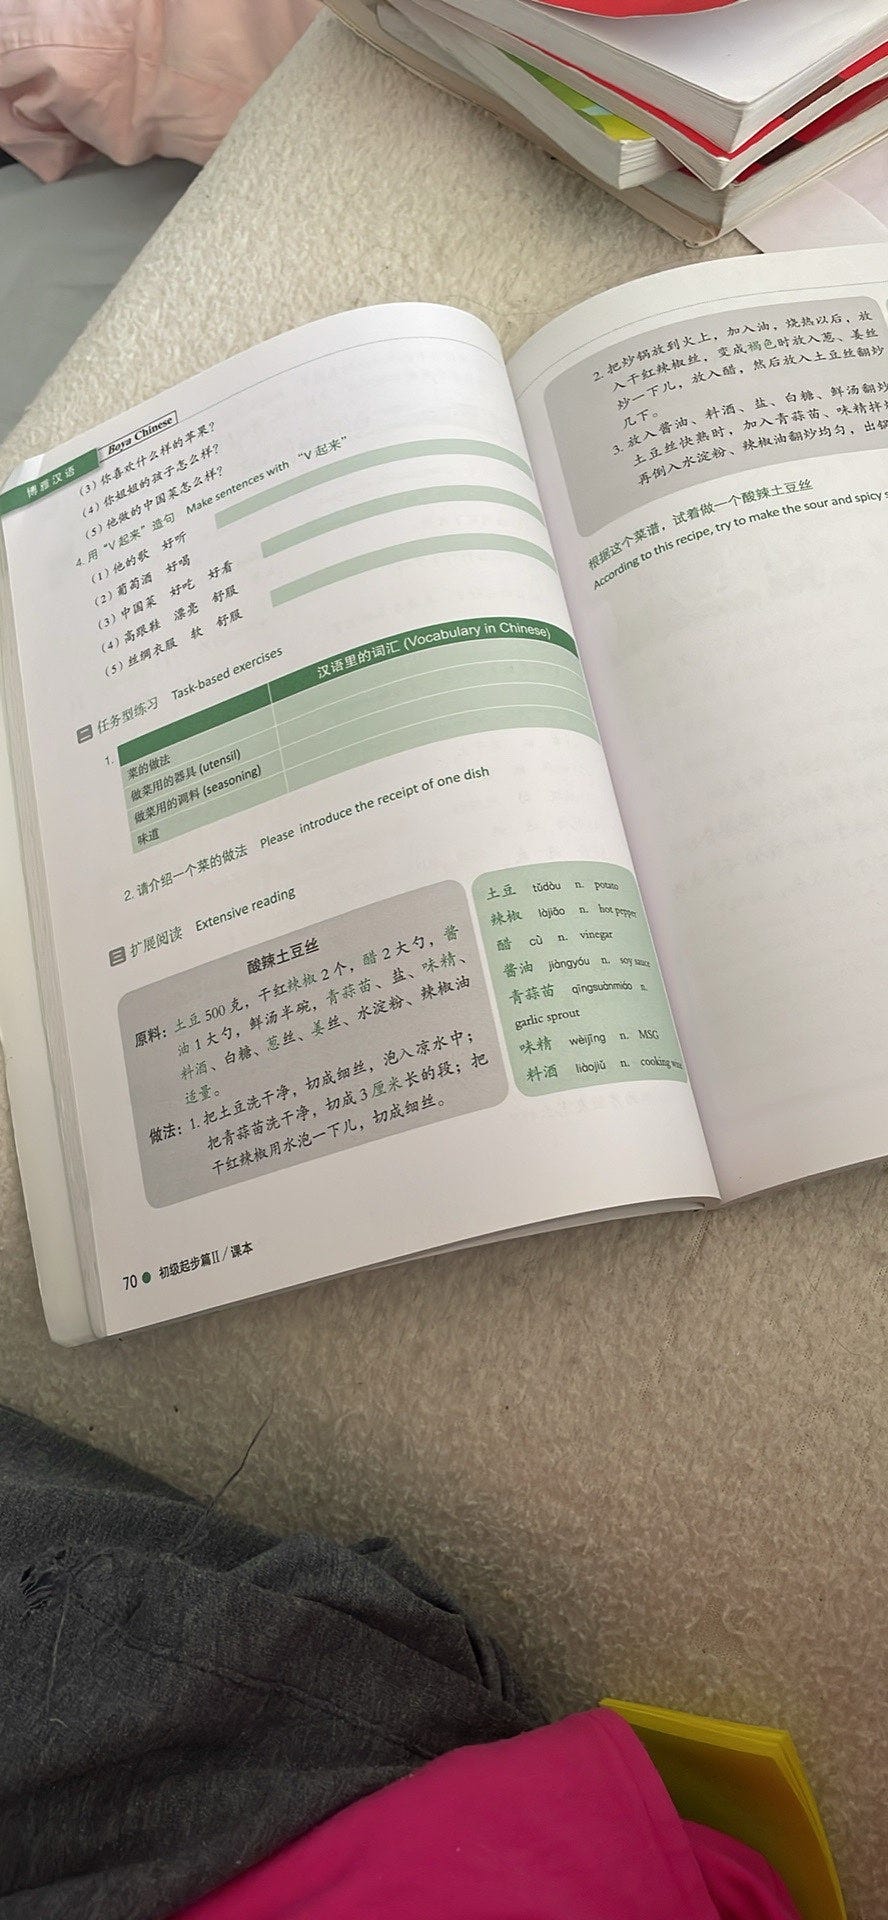 博雅汉语
Boya Chinese
(3) 你喜欢什么样的苹果?
(4) 你姐姐的孩子怎么样?
(5) 他做的中国菜怎么样?
4. 用“V起来”造句 Make sentences with “V起来”
(1) 他的歌 好听
(2) 葡萄酒 好喝
(3) 中国菜 好吃 好看
(4) 高跟鞋 漂亮 舒服
(5) 丝绸衣服 软 舒服
二 任务型练习 Task-based exercises
1.
汉语里的词汇 (Vocabulary in Chinese)
菜的做法
做菜用的器具 (utensil)
做菜用的调料 (seasoning)
味道
2. 请介绍一个菜的做法 Please introduce the receipt of one dish
三 扩展阅读 Extensive reading
酸辣土豆丝
原料: 土豆 500 克, 干红辣椒 2 个, 醋 2 大勺, 酱
油 1 大勺, 鲜汤半碗, 青蒜苗、盐、味精、
料酒、白糖、葱丝、姜丝、水淀粉、辣椒油
适量。
做法: 1. 把土豆洗干净, 切成细丝, 泡入凉水中;
把青蒜苗洗干净, 切成 3 厘米长的段; 把
干红辣椒用水泡一下儿, 切成细丝。
土豆 tǔdòu n. potato
辣椒 làjiāo n. hot pepper
醋 cù n. vinegar
酱油 jiàngyóu n. soy sauce
青蒜苗 qīngsuànmiáo n.
garlic sprout
味精 wèijīng n. MSG
料酒 liàojiǔ n. cooking wine
70 ● 初级起步篇II / 课本
2. 把炒锅放到火上, 加入油, 烧热以后, 放
入干红辣椒丝, 变成褐色时放入葱、姜丝
炒一下儿, 放入醋, 然后放入土豆丝翻炒
几下。
3. 放入酱油、料酒、盐、白糖、鲜汤翻炒
土豆丝快熟时, 加入青蒜苗、味精拌
再倒入水淀粉、辣椒油翻炒均匀, 出锅
根据这个菜谱, 试着做一个酸辣土豆丝
According to this recipe, try to make the sour and spicy